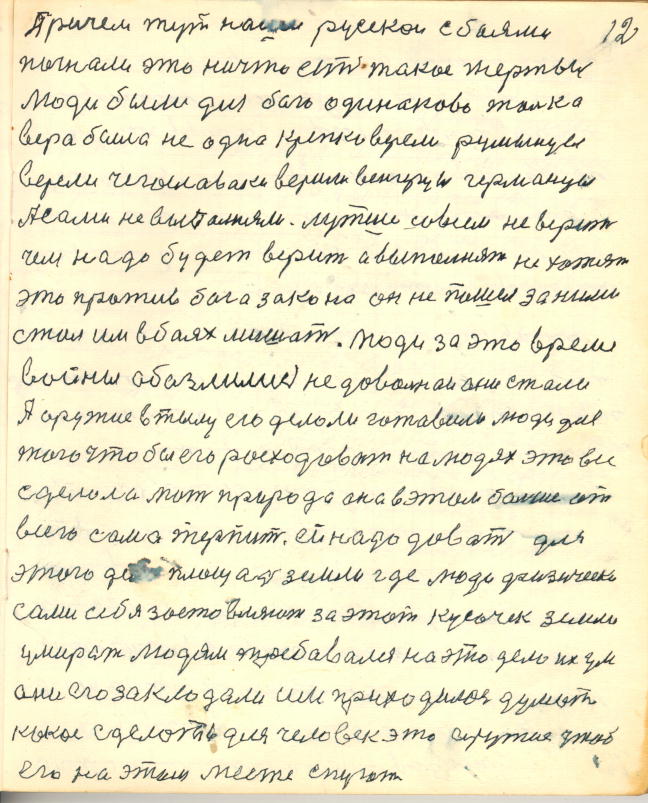 Причем тут наши русскои сбоями 12
погнали это ничто есть такое жертвы
люди были для бога одинаково толка
вера была не одна крепко верели румынцы
верели чегославаки верили венгры германцы
А сами невыполняли. лутше совсем не верит
чем надо будет верит а выполнят не хотят
это против бога закона он не пошел за ними
стал им в баях мешат. Люди за это време
войны обазлились недоволнаи они стали
А оружие в тылу его делали готавили люди для
того что бы его росходоват на людях это все
сделола мат природа она в этом болше от
всего сама терпит. ей надо доват для
этого площад земли где люди физически
сами себя зоставляют за этот кусочек земли
умират людям требавался на это дело их ум
они его заклодали им приходилося думат
какое сделоть для человек это оружие чтоб
его на этом месте спугат